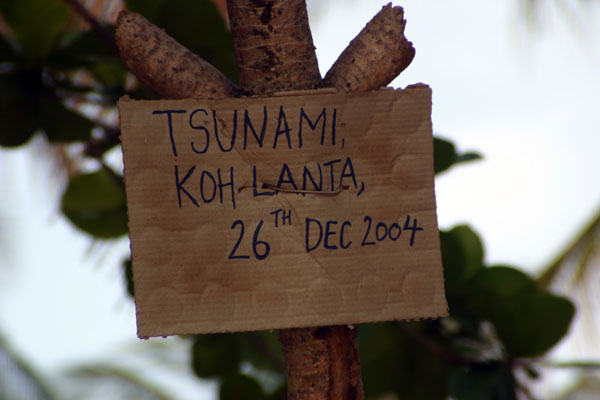 TSUNAMI,
KOH LANTA,
26TH DEC 2004